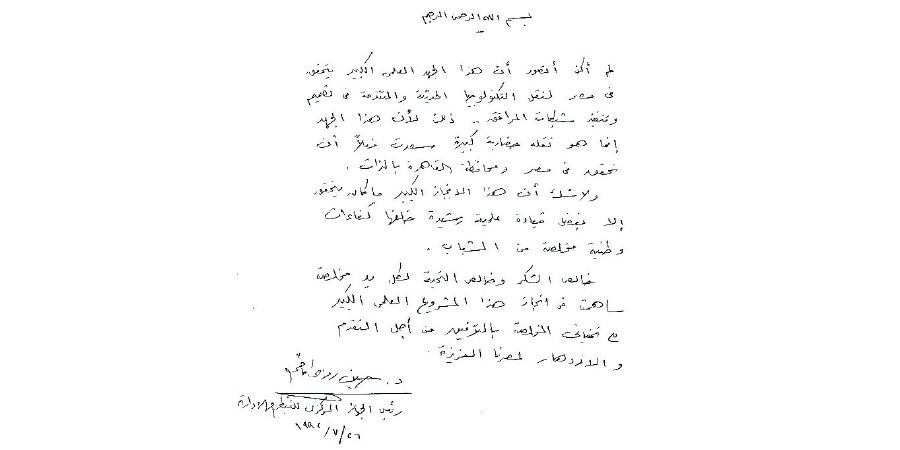 بسم الله الرحمن الرحيم
لم أكن أتصور أن هذا الجهد العلمى الكبير يتحقق
فى مصر لنقل التكنولوجيا الحديثة والمتقدمة فى تصميم
وتنفيذ شبكات المرافق .. ذلك لأن هذا الجهد
إنما هو نقله حضارية كبيرة سعدت فعلاً أن
تحقق فى مصر ومحافظة القاهرة بالذات .
ولا شك أن هذا الانجاز الكبير ما كان يتحقق
إلا بفضل قيادة علمية رشيدة خلفها كفاءات
وطنية مخلصة من الشباب .
خالص الشكر وخالص التحية لكل يد مخلصة
ساهمت فى انجاز هذا المشروع العلمى الكبير
مع تمنياتى المخلصة بالتوفيق من أجل التقدم
والازدهار لمصرنا العزيزة .
د. حسين رمزى كاظم
رئيس الجهاز المركزى للتنظيم والادارة